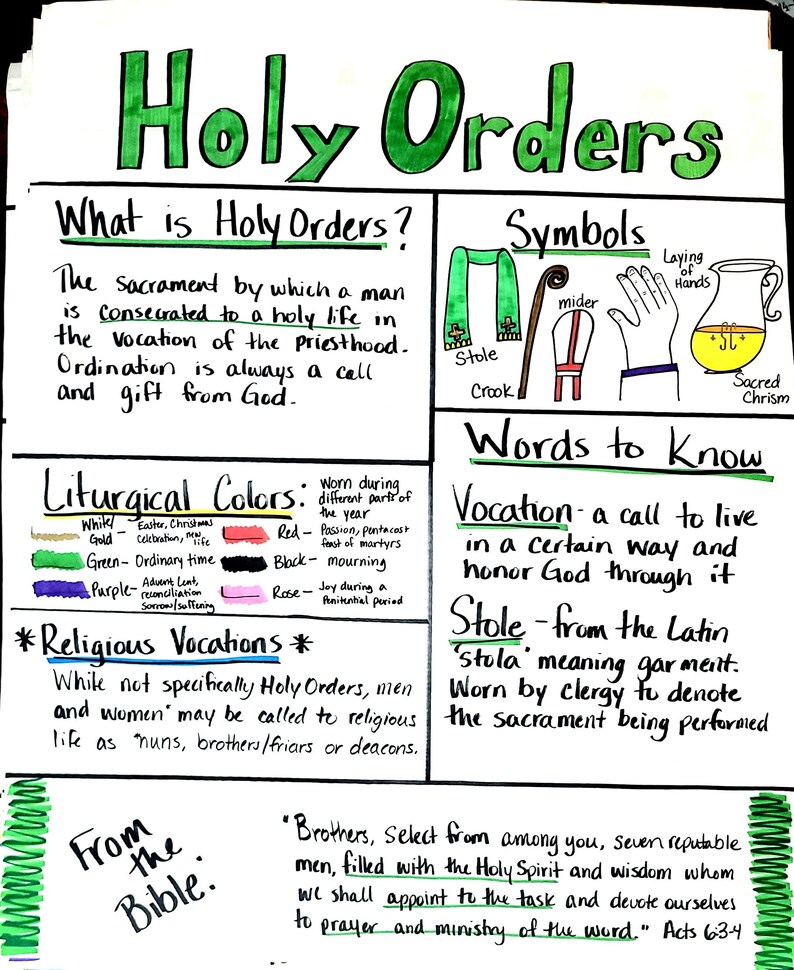 Holy Orders
What is Holy Orders?
The sacrament by which a man
is consecrated to a holy life in
the vocation of the priesthood.
Ordination is always a call
and gift from God.
Symbols
Stole
Crook
mider
Laying
of
Hands
Sacred
Chrism
Liturgical Colors:
Worn during
different parts of
the year
White/
Gold -
Easter, Christmas
Celebration, new
life
Green - Ordinary time
Purple -
Advent, Lent,
reconciliation
sorrow/suffering
Red -
Passion, pentacost
feast of martyrs
Black - mourning
Rose -
Joy during a
Penitential period
*Religious Vocations*
While not specifically Holy Orders, men
and women* may be called to religious
life as *nuns, brothers/friars or deacons.
Words to Know
Vocation - a call to live
in a certain way and
honor God through it
Stole - from the Latin
'stola' meaning garment.
Worn by clergy to denote
the sacrament being performed
From
the
Bible:
"Brothers, Select from among you, seven reputable
men, filled with the Holy Spirit and wisdom whom
we shall appoint to the task and devote ourselves
to prayer and ministry of the word." Acts 6:3-4